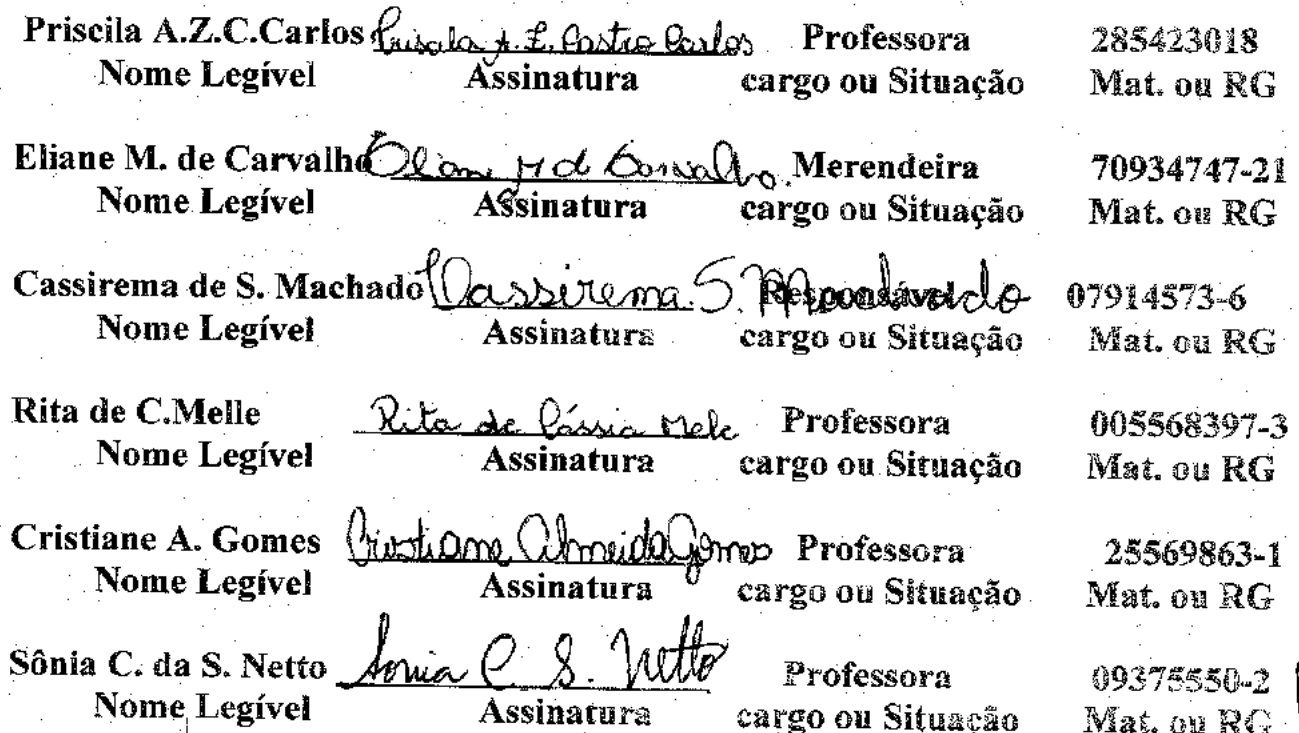 Priscila A.Z.C.Carlos Priscila A. Z. Castro Carlos Professora 285423018
Nome Legível Assinatura cargo ou Situação Mat. ou RG
Eliane M. de Carvalho Eliane M de Carvalho. Merendeira 70934747-21
Nome Legível Assinatura cargo ou Situação Mat. ou RG
Cassirema de S. Machado Cassirema S. Machado Responsável 07914573-6
Nome Legível Assinatura cargo ou Situação Mat. ou RG
Rita de C.Melle Rita de Cássia Mele Professora 005568397-3
Nome Legível Assinatura cargo ou Situação Mat. ou RG
Cristiane A. Gomes Cristiane Almeida Gomes Professora 25569863-1
Nome Legível Assinatura cargo ou Situação Mat. ou RG
Sônia C. da S. Netto Sonia C. S. Netto Professora 09375550-2
Nome Legível Assinatura cargo ou Situação Mat. ou RG